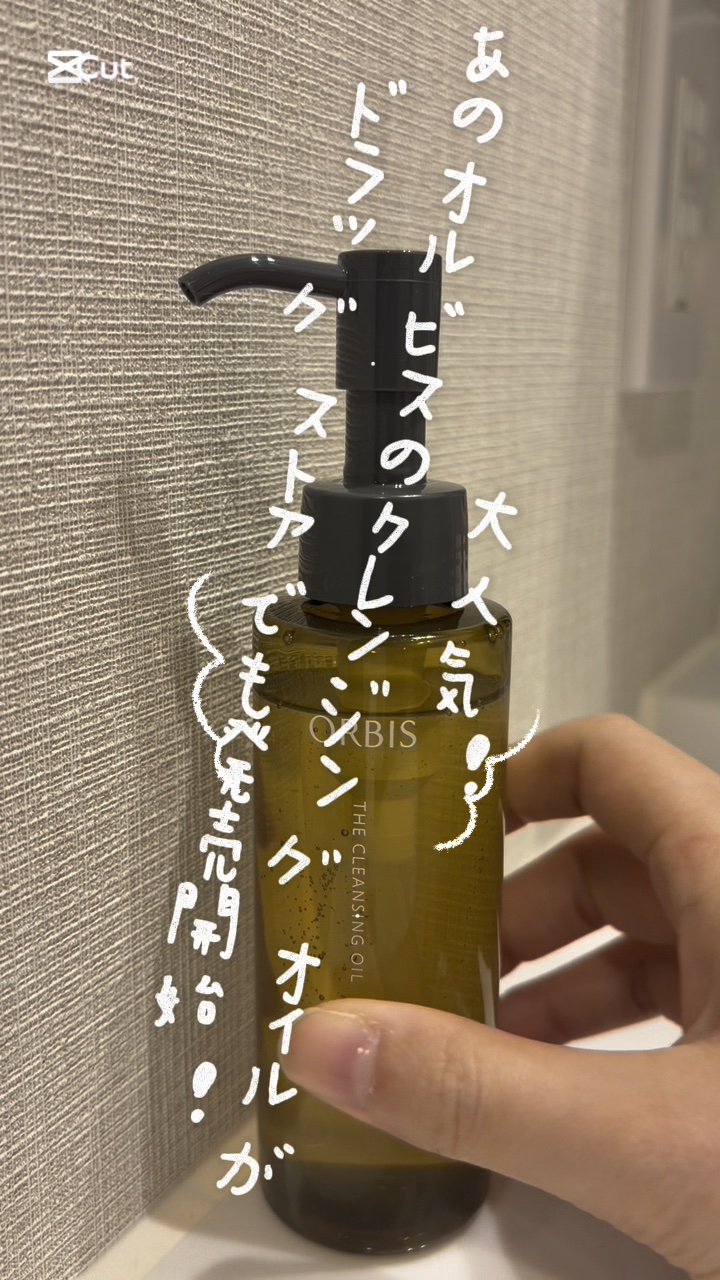 大人気!
あのオルビスのクレンジングオイルが
ドラッグストアでも発売開始!
ORBIS
THE CLEANSING OIL
Cut